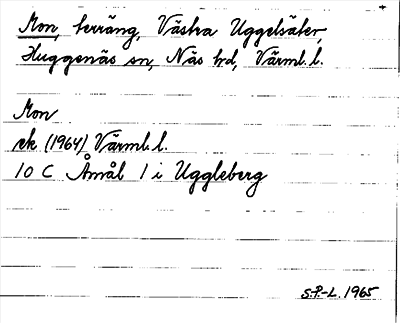 Mon, terräng, Västra Uggelsäter,
Huggenäs sn, Näs hd, Värml. l.
Mon
ek (1964) Värml. l.
10 C Åmål 1 i Uggleberg
S.P.-L. 1965